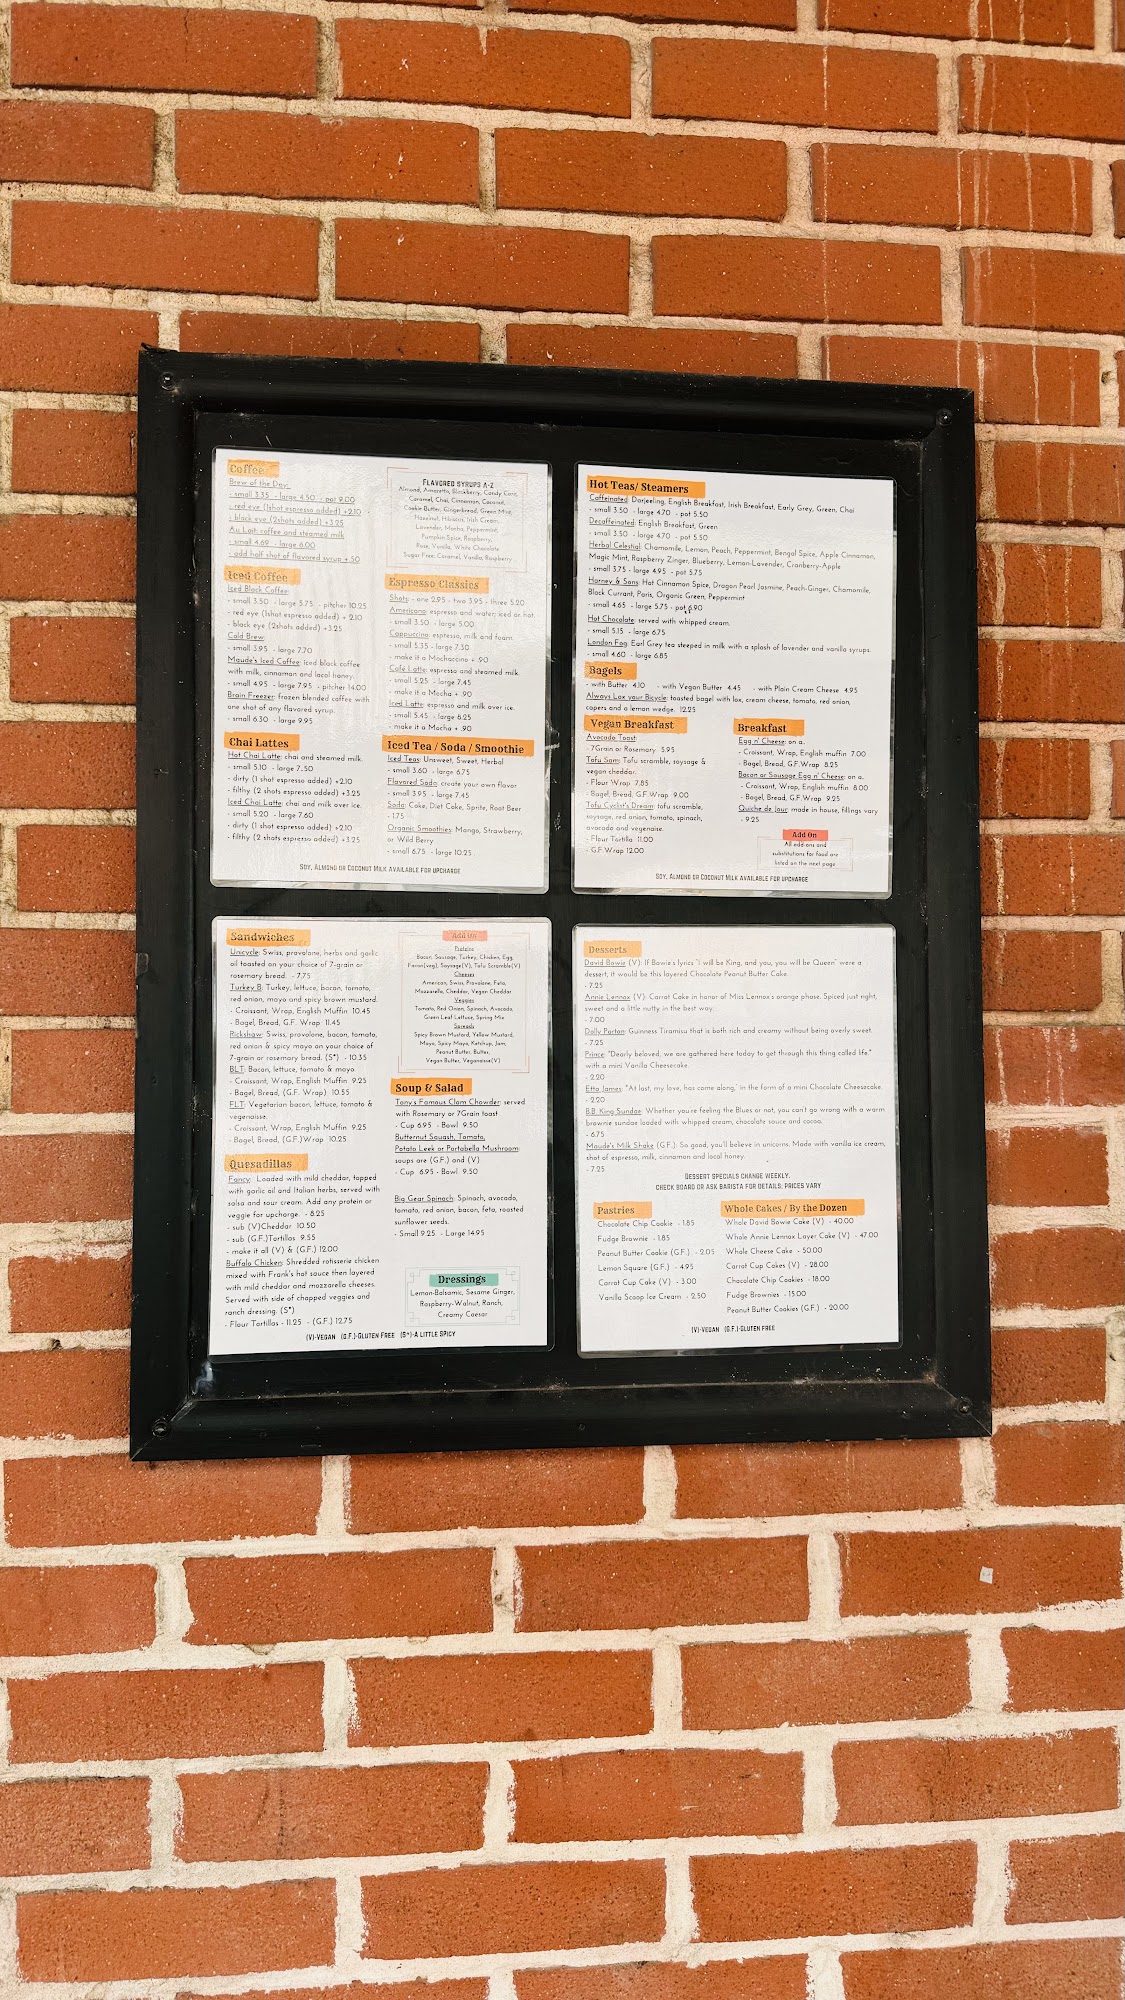 Coffee
Brew of the Day:
- small 3.35 - large 4.50 - pot 9.00
- red eye (1shot espresso added) +2.10
- black eye (2shots added) +3.25
Au Lait: coffee and steamed milk
- small 4.69 - large 6.00
- add half shot of flavored syrup +.50
Iced Coffee
Iced Black Coffee:
- small 3.50 - large 5.75 - pitcher 10.25
- red eye (1shot espresso added) + 2.10
- black eye (2shots added) +3.25
Cold Brew:
- small 3.95 - large 7.70
Maude's Iced Coffee: iced black coffee
with milk, cinnamon and local honey.
- small 4.95 - large 7.95 - pitcher 14.00
Brain Freezer: frozen blended coffee with
one shot of any flavored syrup.
- small 6.30 - large 9.95
Chai Lattes
Hot Chai Latte: chai and steamed milk.
- small 5.10 - large 7.50
- dirty (1 shot espresso added) +2.10
- filthy (2 shots espresso added) +3.25
Iced Chai Latte: chai and milk over ice.
- small 5.20 - large 7.60
- dirty (1 shot espresso added) +2.10
- filthy (2 shots espresso added) +3.25
Flavored Syrups A-Z
Almond, Amaretto, Blackberry, Candy Corn,
Caramel, Chai, Cinnamon, Coconut,
Cookie Butter, Gingerbread, Green Mint,
Hazelnut, Hibiscus, Irish Cream,
Lavender, Mocha, Peppermint,
Pumpkin Spice, Raspberry,
Rose, Vanilla, White Chocolate
Sugar Free: Caramel, Vanilla, Raspberry
Espresso Classics
Shots: - one 2.95 - two 3.95 - three 5.20
Americano: espresso and water; iced or hot.
- small 3.50 - large 5.00
Cappuccino: espresso, milk and foam.
- small 5.35 - large 7.30
- make it a Mochaccino + .90
Café Latte: espresso and steamed milk.
- small 5.25 - large 7.45
- make it a Mocha + .90
Iced Latte: espresso and milk over ice.
- small 5.45 - large 8.25
- make it a Mocha + .90
Iced Tea / Soda / Smoothie
Iced Teas: Unsweet, Sweet, Herbal
- small 3.60 - large 6.75
Flavored Soda: create your own flavor
- small 3.95 - large 7.45
Soda: Coke, Diet Coke, Sprite, Root Beer
- 1.75
Organic Smoothies: Mango, Strawberry,
or Wild Berry
- small 6.75 - large 10.25
Soy, Almond or Coconut Milk available for upcharge
Hot Teas/ Steamers
Caffeinated: Darjeeling, English Breakfast, Irish Breakfast, Early Grey, Green, Chai
- small 3.50 - large 4.70 - pot 5.50
Decaffeinated: English Breakfast, Green
- small 3.50 - large 4.70 - pot 5.50
Herbal Celestial: Chamomile, Lemon, Peach, Peppermint, Bengal Spice, Apple Cinnamon,
Magic Mint, Raspberry Zinger, Blueberry, Lemon-Lavender, Cranberry-Apple
- small 3.75 - large 4.95 - pot 5.75
Harney & Sons: Hot Cinnamon Spice, Dragon Pearl Jasmine, Peach-Ginger, Chamomile,
Black Currant, Paris, Organic Green, Peppermint
- small 4.65 - large 5.75 - pot 6.90
Hot Chocolate: served with whipped cream.
- small 5.15 - large 6.75
London Fog: Earl Grey tea steeped in milk with a splash of lavender and vanilla syrups.
- small 4.60 - large 6.85
Bagels
- with Butter 4.10 - with Vegan Butter 4.45 - with Plain Cream Cheese 4.95
Always Lox your Bicycle: toasted bagel with lox, cream cheese, tomato, red onion,
capers and a lemon wedge. 12.25
Vegan Breakfast
Avocado Toast:
- 7Grain or Rosemary 5.95
Tofu Sam: Tofu scramble, soysage &
vegan cheddar.
- Flour Wrap 7.85
- Bagel, Bread, G.F.Wrap 9.00
Tofu Cyclist's Dream: tofu scramble,
soysage, red onion, tomato, spinach,
avocado and vegenaise.
- Flour Tortilla 11.00
- G.F.Wrap 12.00
Breakfast
Egg n' Cheese: on a..
- Croissant, Wrap, English muffin 7.00
- Bagel, Bread, G.F.Wrap 8.25
Bacon or Sausage Egg n' Cheese: on a..
- Croissant, Wrap, English muffin 8.00
- Bagel, Bread, G.F.Wrap 9.25
Quiche de Jour: made in house, fillings vary
- 9.25
Add On
All add-ons and
substitutions for food are
listed on the next page
Soy, Almond or Coconut Milk available for upcharge
Sandwiches
Unicycle: Swiss, provolone, herbs and garlic
oil toasted on your choice of 7-grain or
rosemary bread. - 7.75
Turkey B: Turkey, lettuce, bacon, tomato,
red onion, mayo and spicy brown mustard.
- Croissant, Wrap, English Muffin 10.45
- Bagel, Bread, G.F. Wrap 11.45
Rickshaw: Swiss, provolone, bacon, tomato,
red onion & spicy mayo on your choice of
7-grain or rosemary bread. (S*) - 10.35
BLT: Bacon, lettuce, tomato & mayo
- Croissant, Wrap, English Muffin 9.25
- Bagel, Bread, (G.F. Wrap) 10.55
FLT: Vegetarian bacon, lettuce, tomato &
vegenaise.
- Croissant, Wrap, English Muffin 9.25
- Bagel, Bread, (G.F.)Wrap 10.25
Quesadillas
Fancy: Loaded with mild cheddar, topped
with garlic oil and Italian herbs, served with
salsa and sour cream. Add any protein or
veggie for upcharge. - 8.25
- sub (V)Cheddar 10.50
- sub (G.F.)Tortillas 9.55
- make it all (V) & (G.F.) 12.00
Buffalo Chicken: Shredded rotisserie chicken
mixed with Frank's hot sauce then layered
with mild cheddar and mozzarella cheeses.
Served with side of chopped veggies and
ranch dressing. (S*)
- Flour Tortillas - 11.25 - (G.F.) 12.75
Add On
Proteins
Bacon, Sausage, Turkey, Chicken, Egg,
Facon(veg), Soysage(V), Tofu Scramble(V)
Cheeses
American, Swiss, Provolone, Feta,
Mozzarella, Cheddar, Vegan Cheddar
Veggies
Tomato, Red Onion, Spinach, Avocado,
Green Leaf Lettuce, Spring Mix
Spreads
Spicy Brown Mustard, Yellow Mustard,
Mayo, Spicy Mayo, Ketchup, Jam,
Peanut Butter, Butter,
Vegan Butter, Veganaise(V)
Soup & Salad
Tony's Famous Clam Chowder: served
with Rosemary or 7Grain toast
- Cup 6.95 - Bowl 9.50
Butternut Squash, Tomato,
Potato Leek or Portabella Mushroom:
soups are (G.F.) and (V)
- Cup 6.95 - Bowl 9.50
Big Gear Spinach: Spinach, avocado,
tomato, red onion, bacon, feta, roasted
sunflower seeds.
- Small 9.25 - Large 14.95
Dressings
Lemon-Balsamic, Sesame Ginger,
Raspberry-Walnut, Ranch,
Creamy Caesar
(V)-Vegan (G.F.)-Gluten Free (S*)-A little Spicy
Desserts
David Bowie (V): If Bowie's lyrics "I will be King, and you, you will be Queen" were a
dessert, it would be this layered Chocolate Peanut Butter Cake.
- 7.25
Annie Lennox (V): Carrot Cake in honor of Miss Lennox's orange phase. Spiced just right,
sweet and a little nutty in the best way.
- 7.00
Dolly Parton: Guinness Tiramisu that is both rich and creamy without being overly sweet.
- 7.25
Prince: "Dearly beloved, we are gathered here today to get through this thing called life."
with a mini Vanilla Cheesecake.
- 2.20
Etta James: "At last, my love, has come along," in the form of a mini Chocolate Cheesecake.
- 2.20
B.B. King Sundae: Whether you're feeling the Blues or not, you can't go wrong with a warm
brownie sundae loaded with whipped cream, chocolate sauce and cocoa.
- 6.75
Maude's Milk Shake (G.F.): So good, you'll believe in unicorns. Made with vanilla ice cream,
shot of espresso, milk, cinnamon and local honey.
- 7.25
Dessert specials change weekly.
Check board or ask barista for details; prices vary
Pastries
Chocolate Chip Cookie - 1.85
Fudge Brownie - 1.85
Peanut Butter Cookie (G.F.) - 2.05
Lemon Square (G.F.) - 4.95
Carrot Cup Cake (V) - 3.00
Vanilla Scoop Ice Cream - 2.50
Whole Cakes / By the Dozen
Whole David Bowie Cake (V) - 40.00
Whole Annie Lennox Layer Cake (V) - 47.00
Whole Cheese Cake - 50.00
Carrot Cup Cakes (V) - 28.00
Chocolate Chip Cookies - 18.00
Fudge Brownies - 15.00
Peanut Butter Cookies (G.F.) - 20.00
(V)-Vegan (G.F.)-Gluten Free